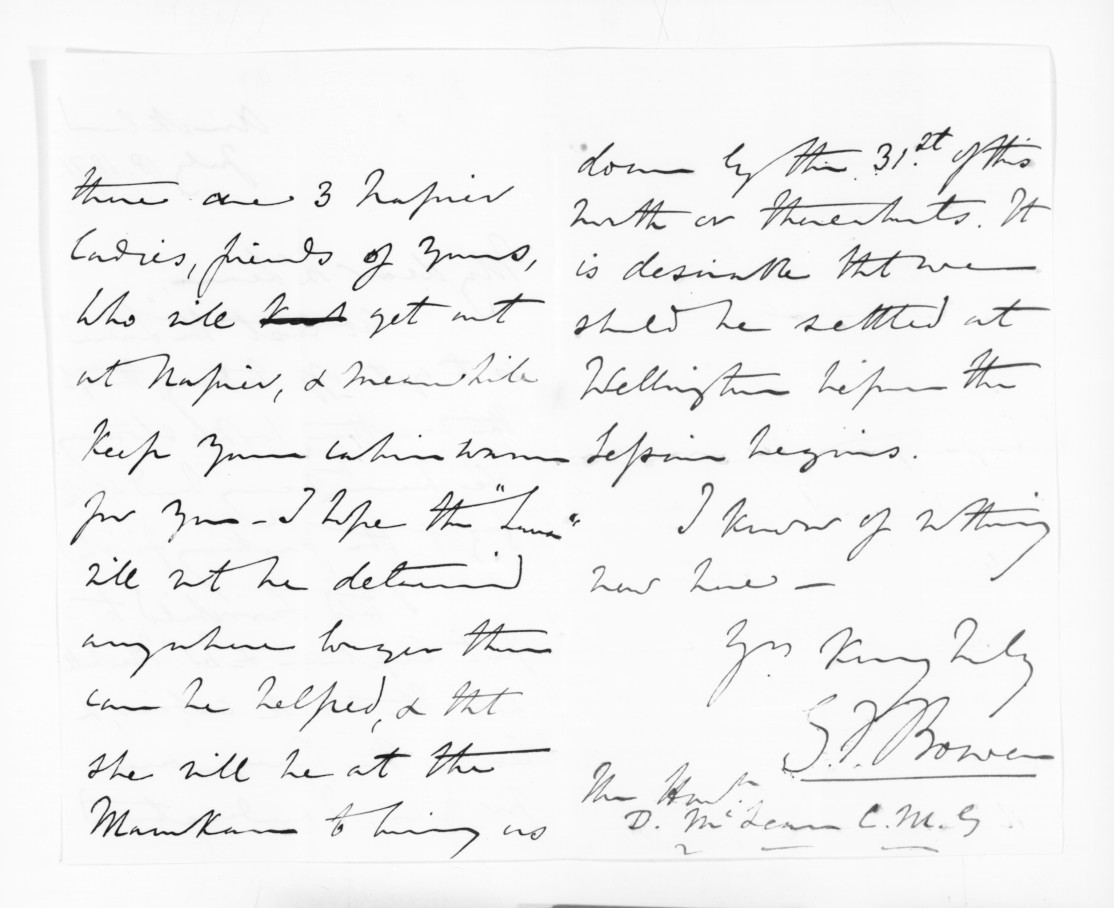 there are 3 Napier
Ladies, friends of yours,
who will get out
at Napier, & meanwhile
keep your cabin warm
for you - I hope the "Luna"
will not be detained
anywhere longer than
can be helped, & that
she will be at the
Manukau to bring us
down by the 31st of this
month or thereabouts. It
is desirable that we
should be settled at
Wellington before the
Session begins.
I know of nothing
new here -
Yrs very truly
G. F. Bowen
The Honble
D. McLean C.M.G